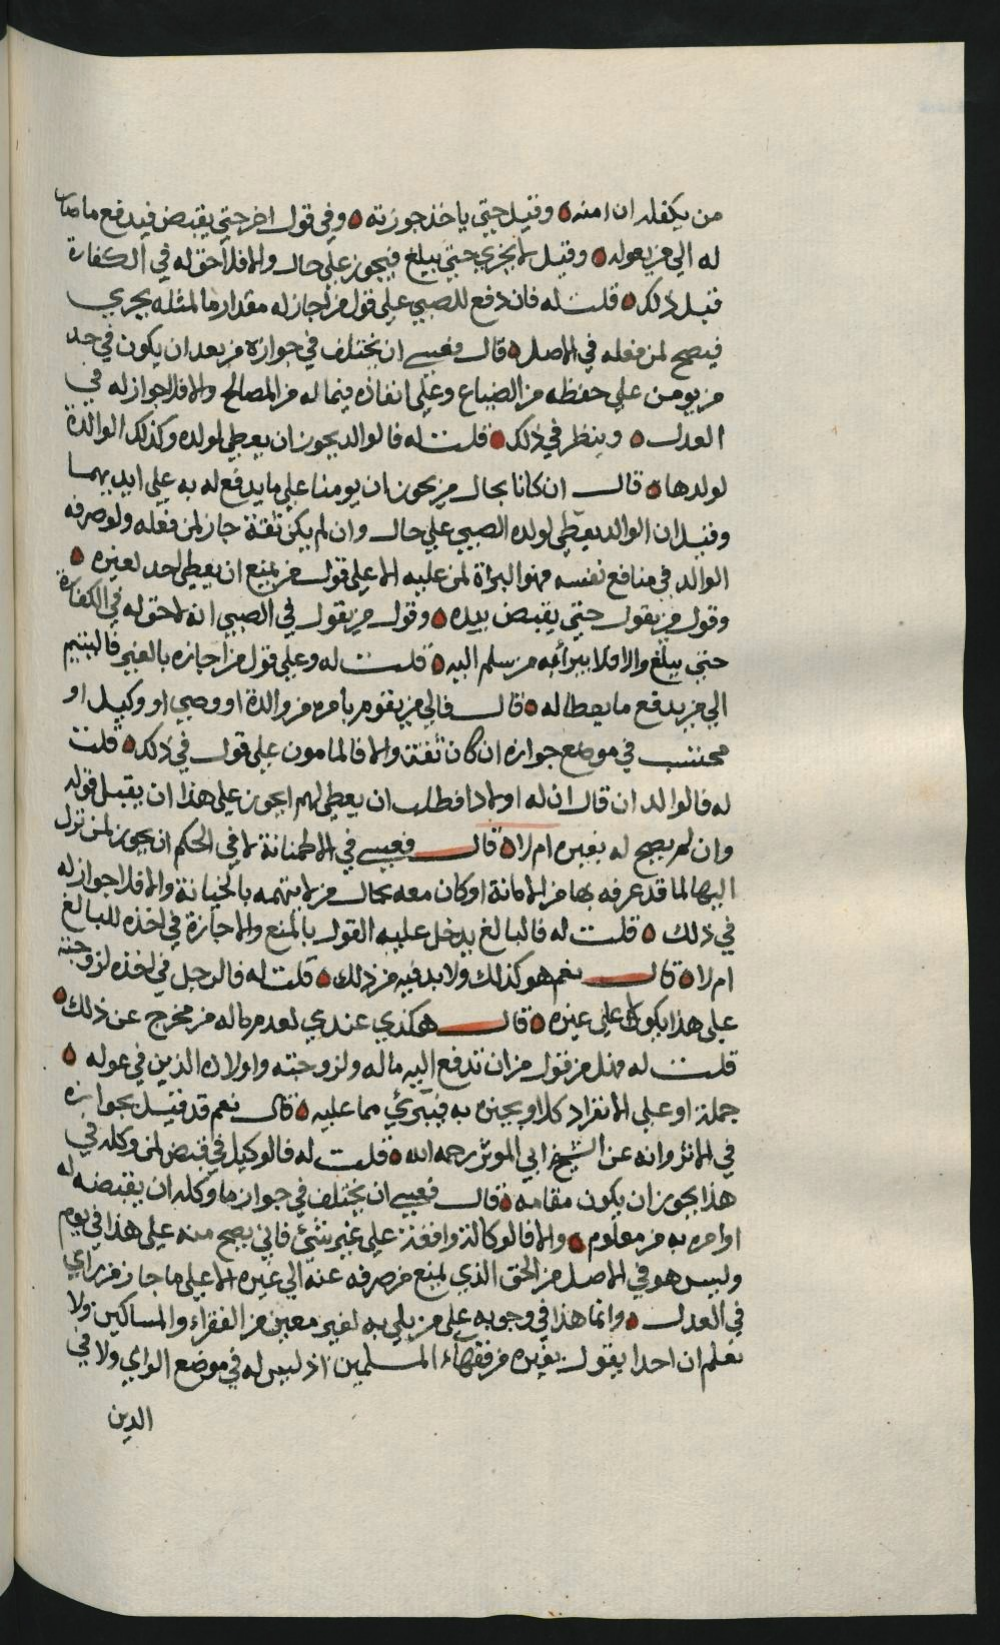 من يكفله ان امنه وقيل حتى ياخذ جوزته وفي قول اخر حتى يقبض فيدفع ما صار
له الى من يعوله وقيل لا يجزي حتى يبلغ فيجوز على حال والا فلا حق له في الكفارة
قبل ذلك قلت له فان دفع للصبي على قول من اجاز له مقدار ما لمثله يجزي
فيصح لمن فعله في الاصل قال فعسى ان يختلف في جوازه من بعد ان يكون في حد
من يومن على حفظه من الضياع وعلى انفاذه فيما له من المصالح والا فلا جواز له في
العدل وينظر في ذلك قلت له فالوالد يجوز ان يعطى لولده وكذلك الوالدة
لولدها قال ان كانا بحال من يجوز ان يومنا على ما يدفع له به على ايديهما
وقيل ان الوالد يعطى لولده الصبي على حال وان لم يكن ثقة جاز لمن فعله ولو صرفه
الوالد في منافع نفسه فهو البراة لمن عليه الا على قول من يمنع ان يعطى احد لغيره
وقول من يقول حتى يقبض بيده وقول من يقول في الصبي انه لا حق له في الكفارة
حتى يبلغ والا فلا يبرأ به من سلم اليه قلت له وعلى قول من اجازه بالغير فاليتيم
الى من يدفع ما يعطا له قال فالى من يقوم بامره من والدة او وصي او وكيل او
محتسب في موضع جوازه ان كان ثقة والا فالمامون على قول في ذلك قلت
له فالوالد ان قال ان له اولادا فطلب ان يعطى لهم ايجوز على هذا ان يقبل قوله
وان لم يصح له بغيره ام لا قال فعسى في الاطمنانة لا في الحكم ان يجوز لمن نزل
اليها لما قد عرفه بها من الامانة او كان معه بحال من لا يتهمه بالخيانة والا فلا جواز له
في ذلك قلت له فالبالغ يدخل عليه القول بالمنع والاجازة في اخذه للبالغ
ام لا قال نعم هو كذلك ولا بد فيه من ذلك قلت له فالرجل في اخذه لزوجته
على هذا يكون على غيره قال هكذي عندي لعدم ما له من مخرج عن ذلك
قلت له فهل من قول من ان تدفع اليه ماله ولزوجته واولاده الذين في عوله
جملة او على الانفراد كلا ويجيزه به فيبرئ مما عليه قال نعم قد قيل بجوازه
في الاثر وانه عن الشيخ ابي الموثر رحمه الله قلت له فالوكيل في قبض لمن وكله في
هذا يجوز ان يكون مقامه قال فعسى ان يختلف في جواز ما وكله ان يقبضه له
او امره به من معلوم والا فالوكالة واقعة على غير شيئ فاني يصح منه على هذا في يوم
وليس هو في الاصل من الحق الذي يمنع من صرفه عنه الى غيره الا على ما جاز من راي
في العدل وانما هذا في وجوبه على من بلي به لغير معين من الفقراء والمساكين ولا
نعلم ان احدا يقول بغيره من فقهاء المسلمين اذ ليس له في موضع الراي ولا في
الدين